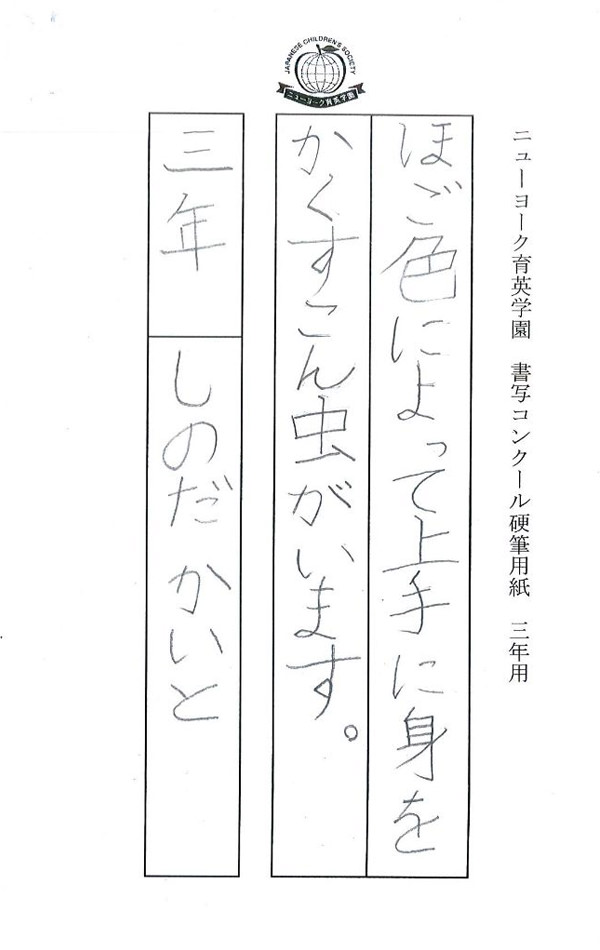 JAPANESE CHILDREN'S SOCIETY
ニューヨーク育英学園
ニューヨーク育英学園 書写コンクール硬筆用紙 三年用
ほご色によって上手に身を
かくすこん虫がいます。
三年 しのだ かいと